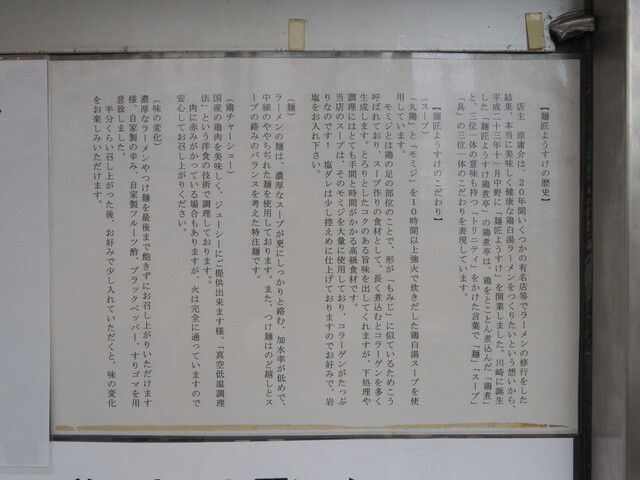 【麺匠ようすけの歴史】
店主　原庸介は、20年間いくつかの有名店等でラーメンの修行をした
結果、本当に美味しく健康な鶏白湯ラーメンをつくりたいという想いから、
平成二十三年十一月中野に「麺匠ようすけ」を開業しました。川崎に誕生
した「麺匠ようすけ鶏煮亭」の鶏煮亭は、鶏をとことん煮込んだ「鶏煮」
と、三位一体の意味も持つ「トリニティ」をかけた言葉で「麺」「スープ」
「具」の三位一体のこだわりを表現しています。
【麺匠ようすけのこだわり】
（スープ）
「丸鶏」と「モミジ」を10時間以上強火で炊きだした鶏白湯スープを使
用しています。
モミジとは鶏の足の部位のことで、形が「もみじ」に似ているためこう
呼ばれており、スープ作りの食材として、長く煮込むとコラーゲンを多く
生成します。とろりとしたコクのある旨味を出してくれますが、下処理や
調理にはとても手間と時間がかかる高級食材です。
当店のスープは、そのモミジを大量に使用しており、コラーゲンがたっぷ
りなのです！塩ダレは少し控えめに仕上げておりますのでお好みで、岩
塩をお入れ下さい。
（麺）
ラーメンの麺は、濃厚なスープが更にしっかりと絡む、加水率が低めで、
中細のややちぢれた麺を使用しております。また、つけ麺はのど越しとス
ープの絡みのバランスを考えた特注麺です。
（鶏チャーシュー）
国産の鶏肉を美味しく、ジューシーにご提供出来ます様、「真空低温調理
法」という洋食の技術で調理しております。
肉に赤みがかっている場合もありますが、火は完全に通っていますので
安心してお召し上がりください。
（味の変化）
濃厚なラーメンやつけ麺を最後まで飽きずにお召し上がりいただけます
様、自家製の辛み、自家製フルーツ酢、ブラックペッパー、すりゴマを用
意致しました。
半分くらい召し上がった後、お好みで少し入れていただくと、味の変化
をお楽しみいただけます。